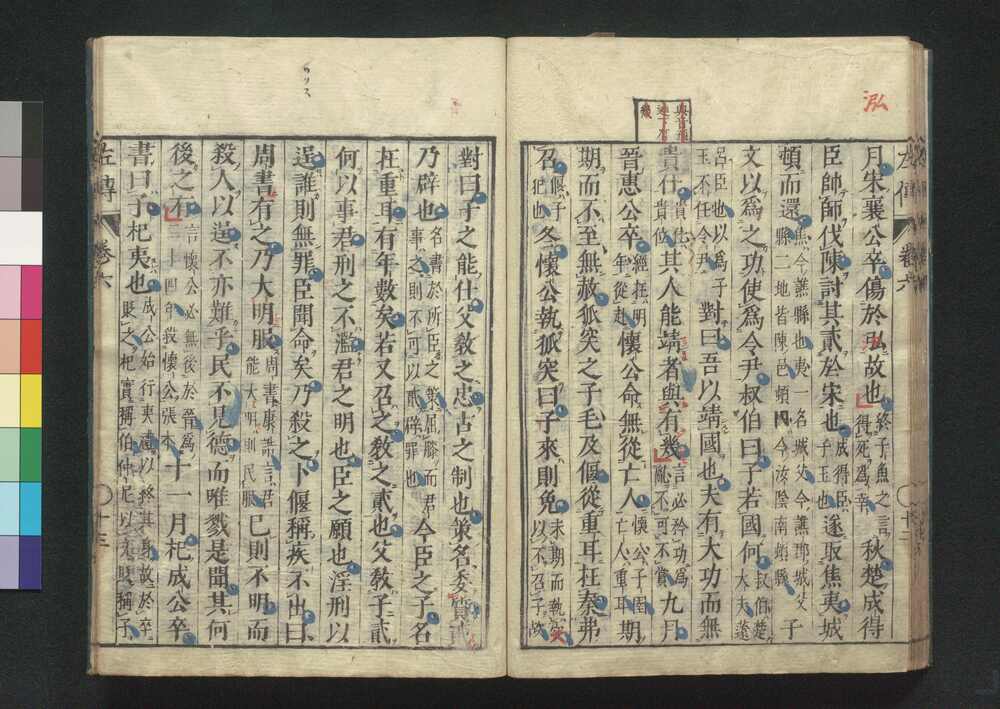 泓
左傳 卷六 十二
月宋襄公卒傷於泓故也終子魚之言得死爲幸秋楚成得
臣帥師伐陳討其貳於宋也成得臣子玉也遂取焦夷城
頓而還焦今譙縣也夷一名城父今譙郡城父縣二地皆陳邑頓國今汝陰南頓縣子
文以爲之功使爲令尹叔伯曰子若國何叔伯楚大夫薳
呂臣也以爲子玉不任令尹對曰吾以靖國也夫有大功而無
貴仕貴仕貴位其人能靖者與有幾言必矜功爲亂不可不賞九月
晉惠公卒經在明年從赴懷公命無從亡人懷公子圉亡人重耳期
期而不至無赦狐突之子毛及偃從重耳在秦弗
召偃子犯也冬懷公執狐突曰子來則免未期而執突以不召子故
對曰子之能仕父教之忠古之制也策名委質貳
乃辟也名書於所臣之策屈膝而君事之則不可以貳辟罪也今臣之子名
在重耳有年數矣若又召之教之貳也父教子貳
何以事君刑之不濫君之明也臣之願也淫刑以
逞誰則無罪臣聞命矣乃殺之卜偃稱疾不出曰
周書有之乃大明服周書康誥言君能大明則民服己則不明而
殺人以逞不亦難乎民不見德而唯戮是聞其何
後之有言懷公必無後於晉爲二十四年殺懷公張本十一月杞成公卒
書曰子杞夷也成公始行夷禮以終其身故於卒貶之杞實稱伯仲尼以文貶稱子
左傳 卷六 十三